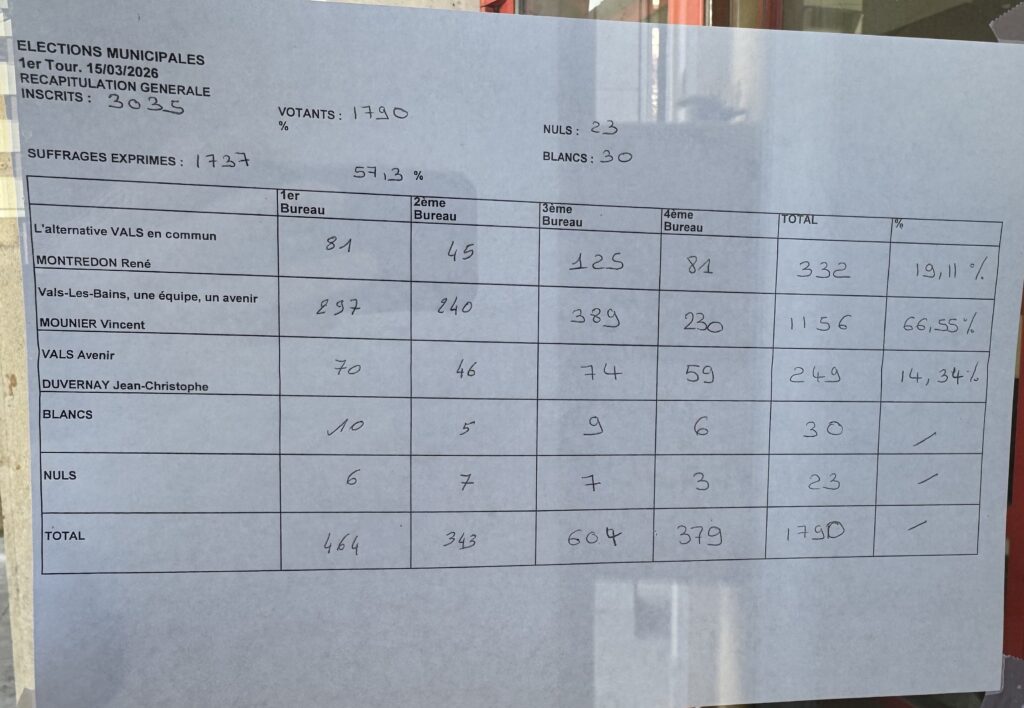 ELECTIONS MUNICIPALES
1er Tour. 15/03/2026
RECAPITULATION GENERALE
INSCRITS : 3035
VOTANTS : 1790
%
NULS : 23
BLANCS : 30
SUFFRAGES EXPRIMES : 1737
57,3 %
1er Bureau 2ème Bureau 3ème Bureau 4ème Bureau TOTAL %
L'alternative VALS en commun
MONTREDON René 81 45 125 81 332 19,11 %
Vals-Les-Bains, une équipe, un avenir
MOUNIER Vincent 297 240 389 230 1156 66,55%
VALS Avenir
DUVERNAY Jean-Christophe 70 46 74 59 249 14,34%
BLANCS 10 5 9 6 30 /
NULS 6 7 7 3 23 /
TOTAL 464 343 604 379 1790 /